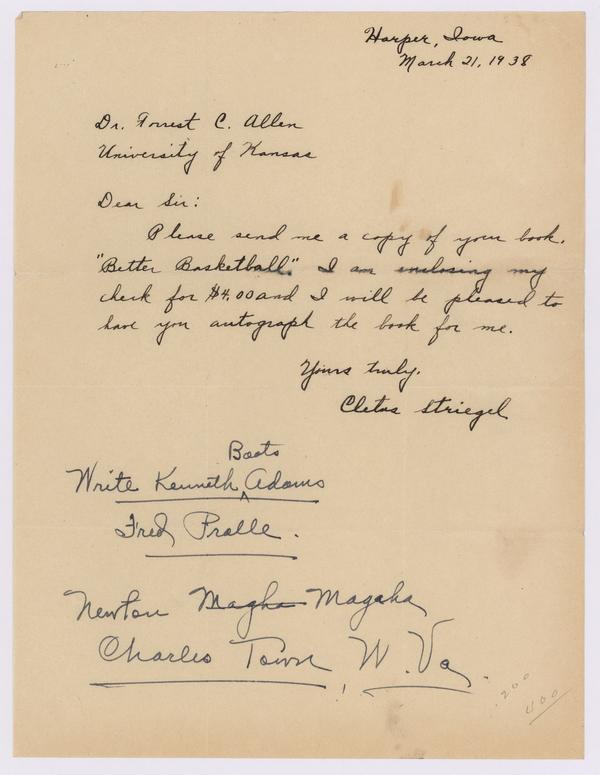 Harper, Iowa
March 21, 1938
Dr. Forrest C. Allen
University of Kansas
Dear Sir:
Please send me a copy of your book.
"Better Basketball." I am enclosing my
check for $4.00 and I will be pleased to
have you autograph the book for me.
Yours truly.
Cletus Striegel
Boots
Write Kenneth ^ Adams
Fred Pralle.
Newton Magha Magaha
Charles Town, W. Va.
200
400